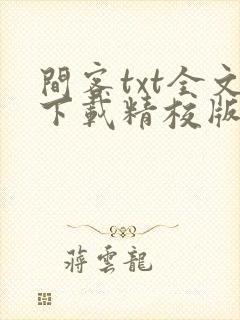 間客txt全文
下載精校版
蔣雲龍